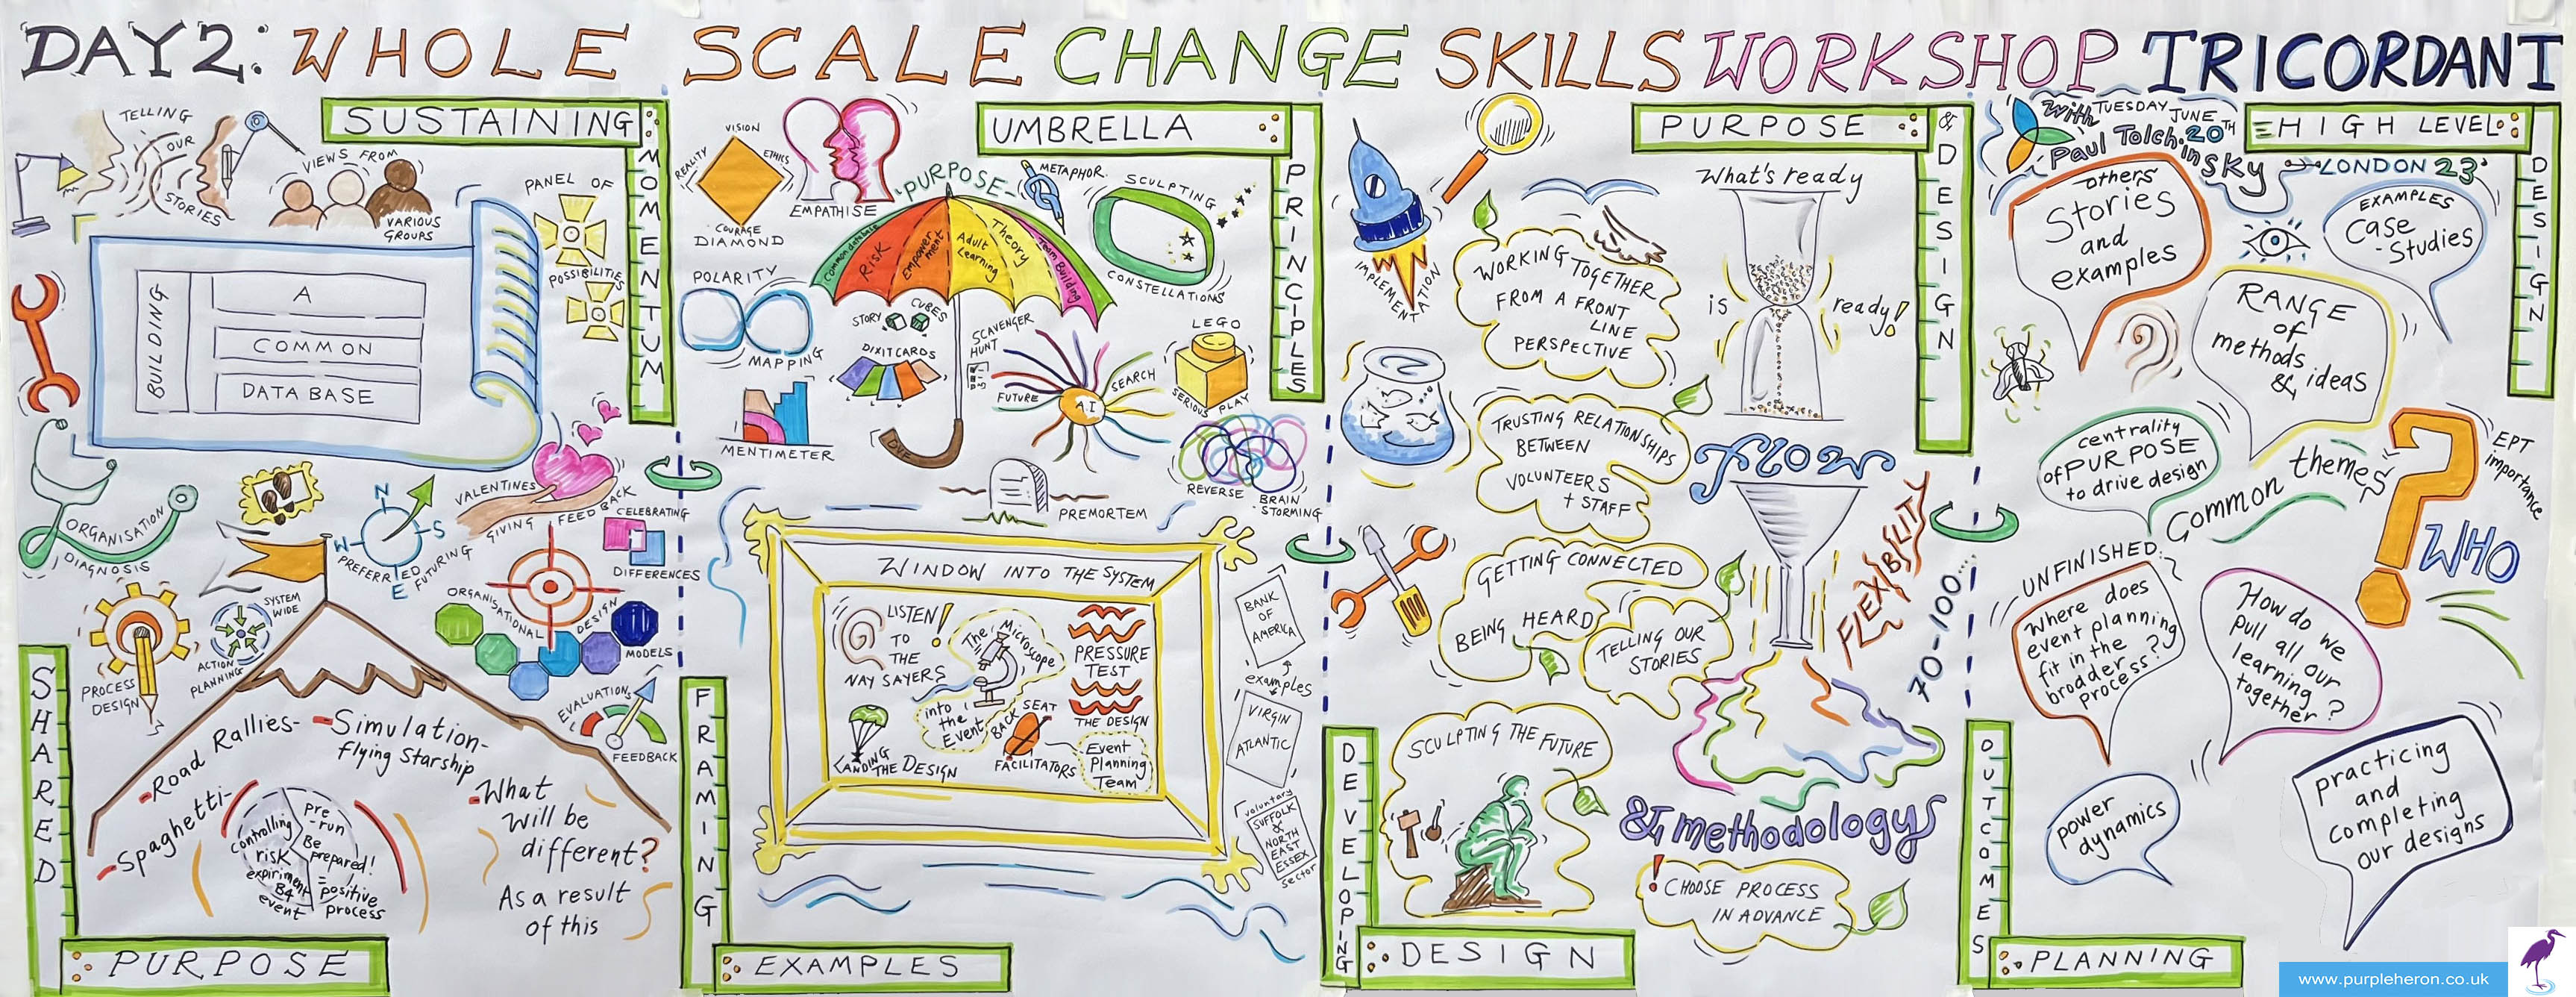 DAY 2: WHOLE SCALE CHANGE SKILLS WORKSHOP TRICORDANT
SUSTAINING
MOMENTUM
TELLING
OUR
STORIES
VIEWS FROM
VARIOUS
GROUPS
PANEL OF
POSSIBILITIES
BUILDING
A
COMMON
DATA BASE
ORGANISATION
DIAGNOSIS
N
S
W
E
PREFERRED
FUTURING
VALENTINES
GIVING FEEDBACK
CELEBRATING
DIFFERENCES
ORGANISATIONAL
DESIGN
MODELS
PROCESS
DESIGN
SYSTEM
WIDE
ACTION
PLANNING
EVALUATION
FEEDBACK
SHARED
PURPOSE
-Road Rallies-
-Simulation-
flying Starship
-Spaghetti-
controlling
risk
expiriment
B4
event
Pre
-run
Be
prepared!
=positive
process
-What
will be
different?
As a result
of this
UMBRELLA
PRINCIPLES
VISION
REALITY
ETHICS
COURAGE
DIAMOND
EMPATHISE
"PURPOSE"
Common database
RISK
Empower
ment
Adult
Learning
Theory
Team Building
DVF
METAPHOR
SCULPTING
CONSTELLATIONS
POLARITY
MAPPING
STORY
CUBES
DIXIT CARDS
SCAVENGER
HUNT
FUTURE
SEARCH
A.I
LEGO
SERIOUS PLAY
MENTIMETER
REVERSE BRAIN
-STORMING
PREMORTEM
FRAMING
EXAMPLES
WINDOW INTO THE SYSTEM
LISTEN!
TO
THE
NAY SAYERS
The Microscope
into
the
Event
PRESSURE
TEST
THE DESIGN
LANDING
THE DESIGN
BACK SEAT
FACILITATORS
Event
Planning
Team
BANK
OF
AMERICA
examples
VIRGIN
ATLANTIC
voluntary
SUFFOLK
&
NORTH
EAST
ESSEX
sector
PURPOSE
& DESIGN
IMPLEMENTATION
WORKING TOGETHER
FROM A FRONT
LINE
PERSPECTIVE
What's ready
is
ready!
TRUSTING RELATIONSHIPS
BETWEEN
VOLUNTEERS
+ STAFF
flow
GETTING CONNECTED
BEING HEARD
TELLING OUR
STORIES
FLEXIBILITY
70-100....
SCULPTING THE FUTURE
& methodology
! CHOOSE PROCESS
IN ADVANCE
DEVELOPING
DESIGN
With
Paul Tolchinsky
TUESDAY
JUNE
20TH
LONDON 23'
HIGH LEVEL
DESIGN
others
Stories
and
examples
EXAMPLES
Case
-Studies
RANGE
of
methods
& ideas
centrality
of PURPOSE
to drive design
Common themes
?
EPT
importance
WHO
UNFINISHED:
Where does
event planning
fit in the
broader
process?
How do we
pull all our
learning
together?
power
dynamics
practicing
and
completing
our designs
OUTCOMES
PLANNING
www.purpleheron.co.uk